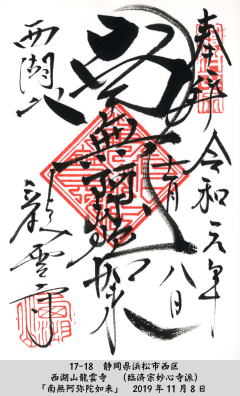 奉拝
令和元年
十一月八日
南無阿弥陀如来
西湖山
龍雲寺
17-18 静岡県浜松市西区
西湖山龍雲寺 (臨済宗妙心寺派)
「南無阿弥陀如来」 2019年11月8日